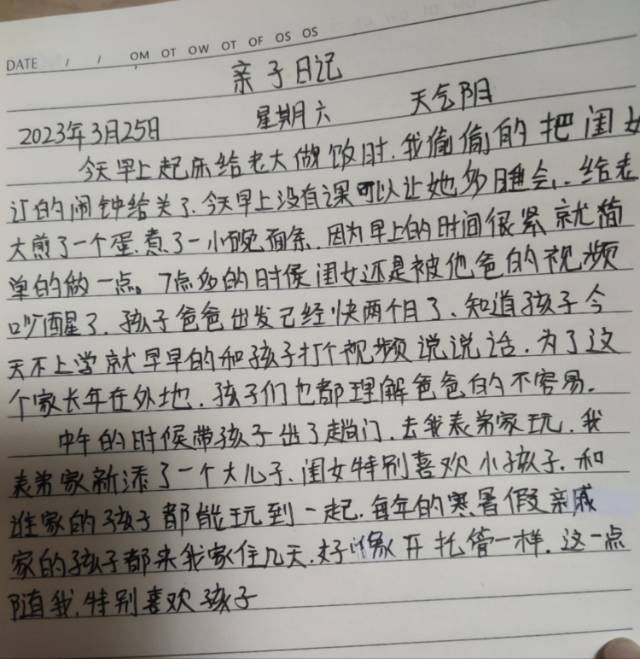 DATE / / OM OT OW OT OF OS OS
亲子日记
2023年3月25日 星期六 天气阴
今天早上起床给老大做饭时,我偷偷的把闺女
订的闹钟给关了,今天早上没有课可以让她多睡会,给老
大煎了一个蛋,煮了一小碗面条,因为早上的时间很紧就简
单的做一点。7点多的时候闺女还是被他爸的视频
吵醒了,孩子爸爸出发已经快两个月了,知道孩子今
天不上学就早早的和孩子打个视频说说话,为了这
个家长年在外地,孩子们也都理解爸爸的不容易。
中午的时候带孩子出了趟门,去我表弟家玩,我
表弟家新添了一个大儿子,闺女特别喜欢小孩子,和
谁家的孩子都能玩到一起,每年的寒暑假亲戚
家的孩子都来我家住几天,好像开托管一样,这一点
随我,特别喜欢孩子